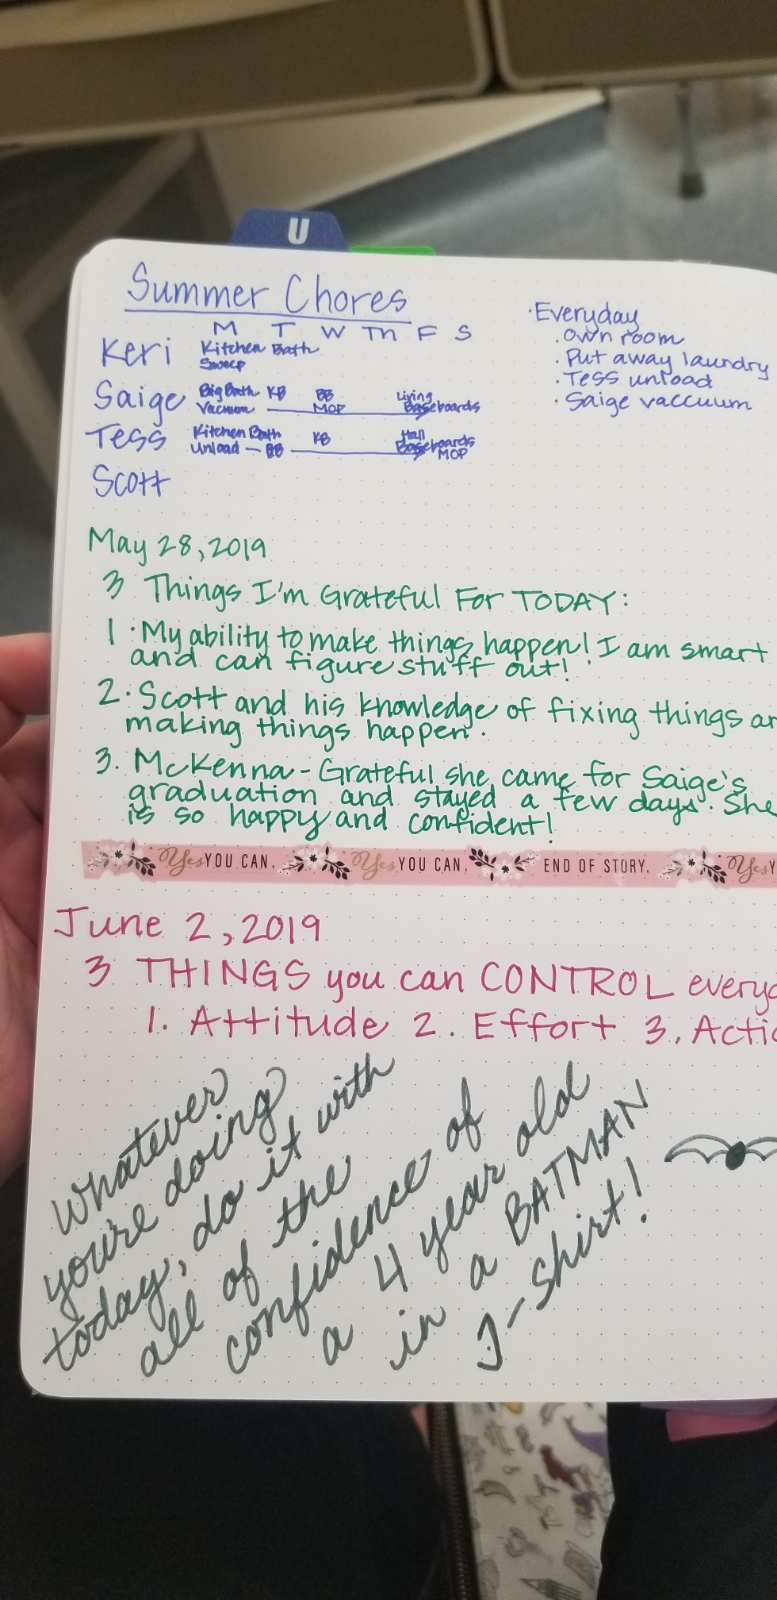 U
Summer Chores
M T W Th F S
Keri Kitchen Bath
Sweep
Saige Big Bath KB BB Living
Vacuum MOP Baseboards
Tess Kitchen Bath KB Hall
Unload BB Baseboards
MOP
Scott
·Everyday
·Own room
·Put away laundry
·Tess unload
·Saige vaccuum
May 28, 2019
3 Things I'm Grateful For TODAY:
1·My ability to make things happen! I am smart
and can figure stuff out!
2·Scott and his knowledge of fixing things
making things happen.
3. McKenna - Grateful she came for Saige's
graduation and stayed a few days. She
is so happy and confident!
Yes YOU CAN. Yes YOU CAN, END OF STORY. Yes
June 2, 2019
3 THINGS you can CONTROL
1. Attitude 2. Effort 3.
whatever
you're doing
today, do it with
all of the
confidence of
a 4 year old
in a BATMAN
T-Shirt!